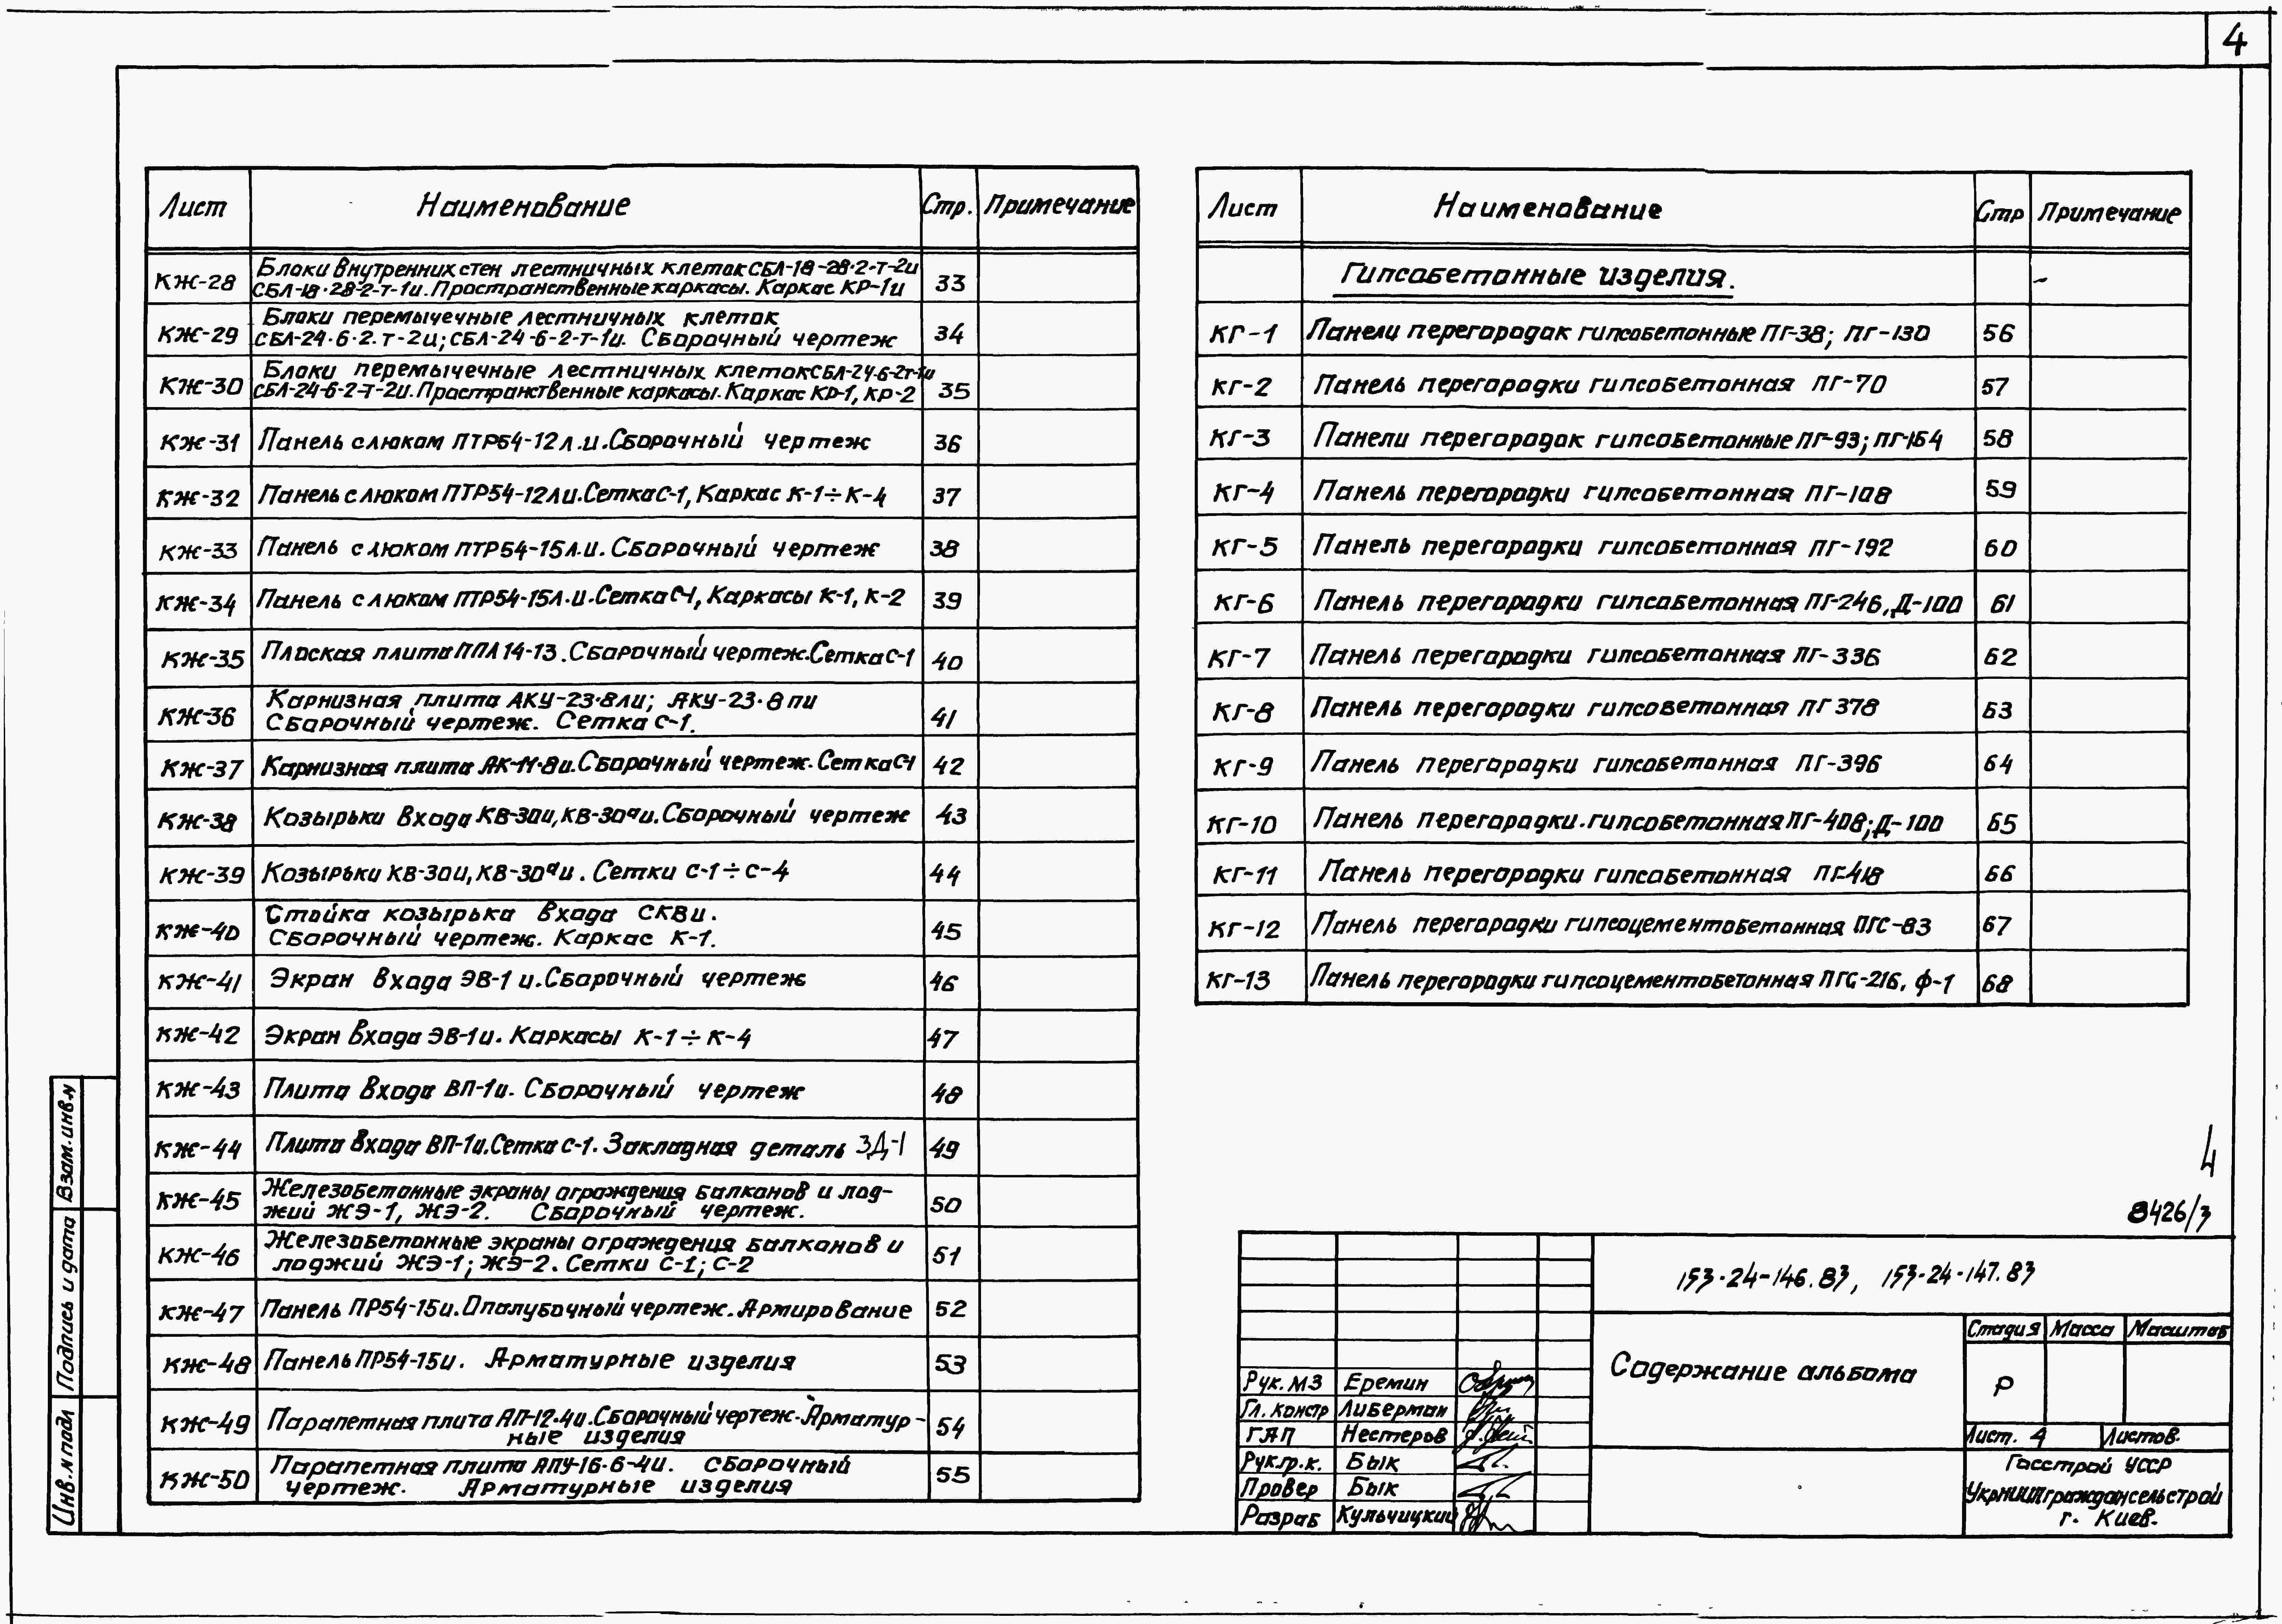 4
Лист Наименование Стр. Примечание
КЖ-28 Блоки внутренних стен лестничных клеток СБЛ-18-28-2-т-2и
СБЛ-18·28-2-т-1и. Пространственные каркасы. Каркас КР-1и 33
КЖ-29 Блоки перемычечные лестничных клеток
СБЛ-24·6·2.т-2и; СБЛ-24-6-2-т-1и. Сборочный чертеж 34
КЖ-30 Блоки перемычечные лестничных клеток СБЛ-24-6-2т-1и
СБЛ-24-6-2-т-2и. Пространственные каркасы. Каркас КР-1, КР-2 35
КЖ-31 Панель с люком ПТР54-12л.и. Сборочный чертеж 36
КЖ-32 Панель с люком ПТР54-12ли. Сетка С-1, Каркас К-1÷К-4 37
КЖ-33 Панель с люком ПТР54-15л.и. Сборочный чертеж 38
КЖ-34 Панель с люком ПТР54-15л.и. Сетка С-1, Каркасы К-1, К-2 39
КЖ-35 Плоская плита ППЛ 14-13. Сборочный чертеж. Сетка С-1 40
КЖ-36 Карнизная плита АКУ-23·8ли; АКУ-23·8пи
Сборочный чертеж. Сетка С-1. 41
КЖ-37 Карнизная плита АК-11·8и. Сборочный чертеж. Сетка С-1 42
КЖ-38 Козырьки входа КВ-30и, КВ-30ᵃи. Сборочный чертеж 43
КЖ-39 Козырьки КВ-30и, КВ-30ᵃи. Сетки С-1÷С-4 44
КЖ-40 Стойка козырька входа СКВи.
Сборочный чертеж. Каркас К-1. 45
КЖ-41 Экран входа ЭВ-1и. Сборочный чертеж 46
КЖ-42 Экран входа ЭВ-1и. Каркасы К-1÷К-4 47
КЖ-43 Плита входа ВП-1и. Сборочный чертеж 48
КЖ-44 Плита входа ВП-1и. Сетка С-1. Закладная деталь ЗД-1 49
КЖ-45 Железобетонные экраны ограждения балконов и лод-
жий ЖЭ-1, ЖЭ-2. Сборочный чертеж. 50
КЖ-46 Железобетонные экраны ограждения балконов и
лоджий ЖЭ-1; ЖЭ-2. Сетки С-1; С-2 51
КЖ-47 Панель ПР54-15и. Опалубочный чертеж. Армирование 52
КЖ-48 Панель ПР54-15и. Арматурные изделия 53
КЖ-49 Парапетная плита АП-12·4и. Сборочный чертеж. Арматур-
ные изделия 54
КЖ-50 Парапетная плита АПУ-16·6-4и. Сборочный
чертеж. Арматурные изделия 55
Лист Наименование Стр Примечание
Гипсобетонные изделия.
КГ-1 Панели перегородок гипсобетонные ПГ-38; ПГ-130 56
КГ-2 Панель перегородки гипсобетонная ПГ-70 57
КГ-3 Панели перегородок гипсобетонные ПГ-93; ПГ-164 58
КГ-4 Панель перегородки гипсобетонная ПГ-108 59
КГ-5 Панель перегородки гипсобетонная ПГ-192 60
КГ-6 Панель перегородки гипсобетонная ПГ-246, Д-100 61
КГ-7 Панель перегородки гипсобетонная ПГ-336 62
КГ-8 Панель перегородки гипсобетонная ПГ 378 63
КГ-9 Панель перегородки гипсобетонная ПГ-396 64
КГ-10 Панель перегородки.гипсобетонная ПГ-408; Д-100 65
КГ-11 Панель перегородки гипсобетонная ПГ-418 66
КГ-12 Панель перегородки гипсоцементобетонная ПГС-83 67
КГ-13 Панель перегородки гипсоцементобетонная ПГС-216, Ф-1 68
4
8426/3
153·24-146.83, 153·24-147.83
Содержание альбома
Стадия Масса Масштаб
Р
Лист. 4 Листов.
Госстрой УССР
УкрНИИПграждансельстрой
г. Киев.
Рук. МЗ Еремин
Гл. констр Либерман
ГАП Нестеров
Рук.гр.к. Бык
Провер Бык
Разраб Кульчицкий
Взам. инв. №
Подпись и дата
Инв. № подл